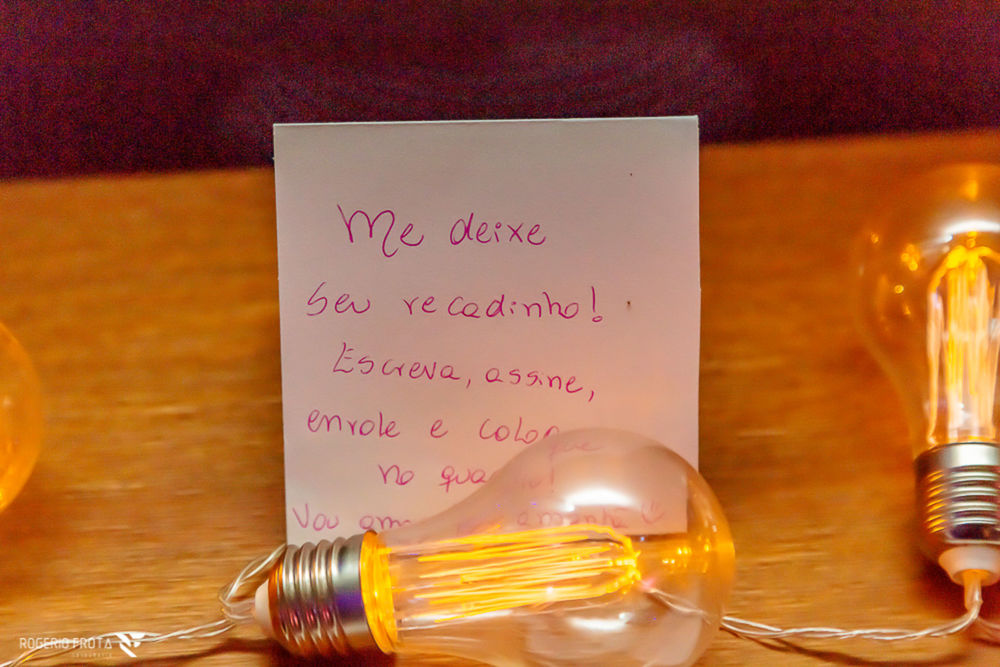 Me deixe
seu recadinho!
Escreva, assine,
enrole e coloque
no
Vou
ROGERIO FROTA